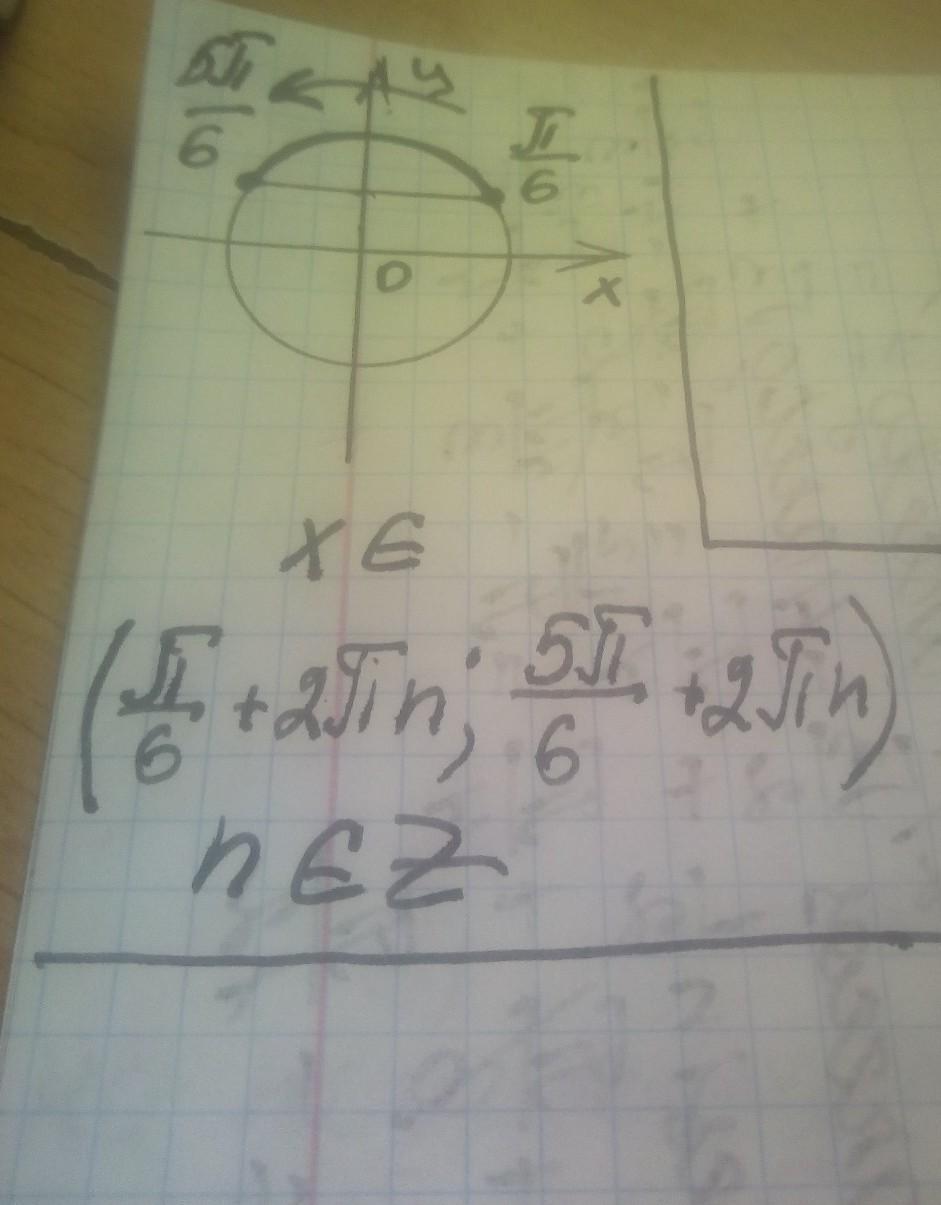 5π/6 y
π/6
0
x
x ∈
(π/6 + 2πn; 5π/6 + 2πn)
n ∈ Z